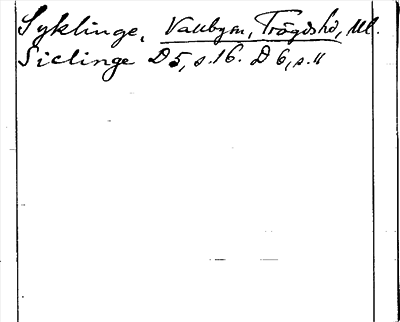 Syklinge, Vallbym, Trögdshd, Ul.
Siclinge D 5, s. 16. D 6, s. 11